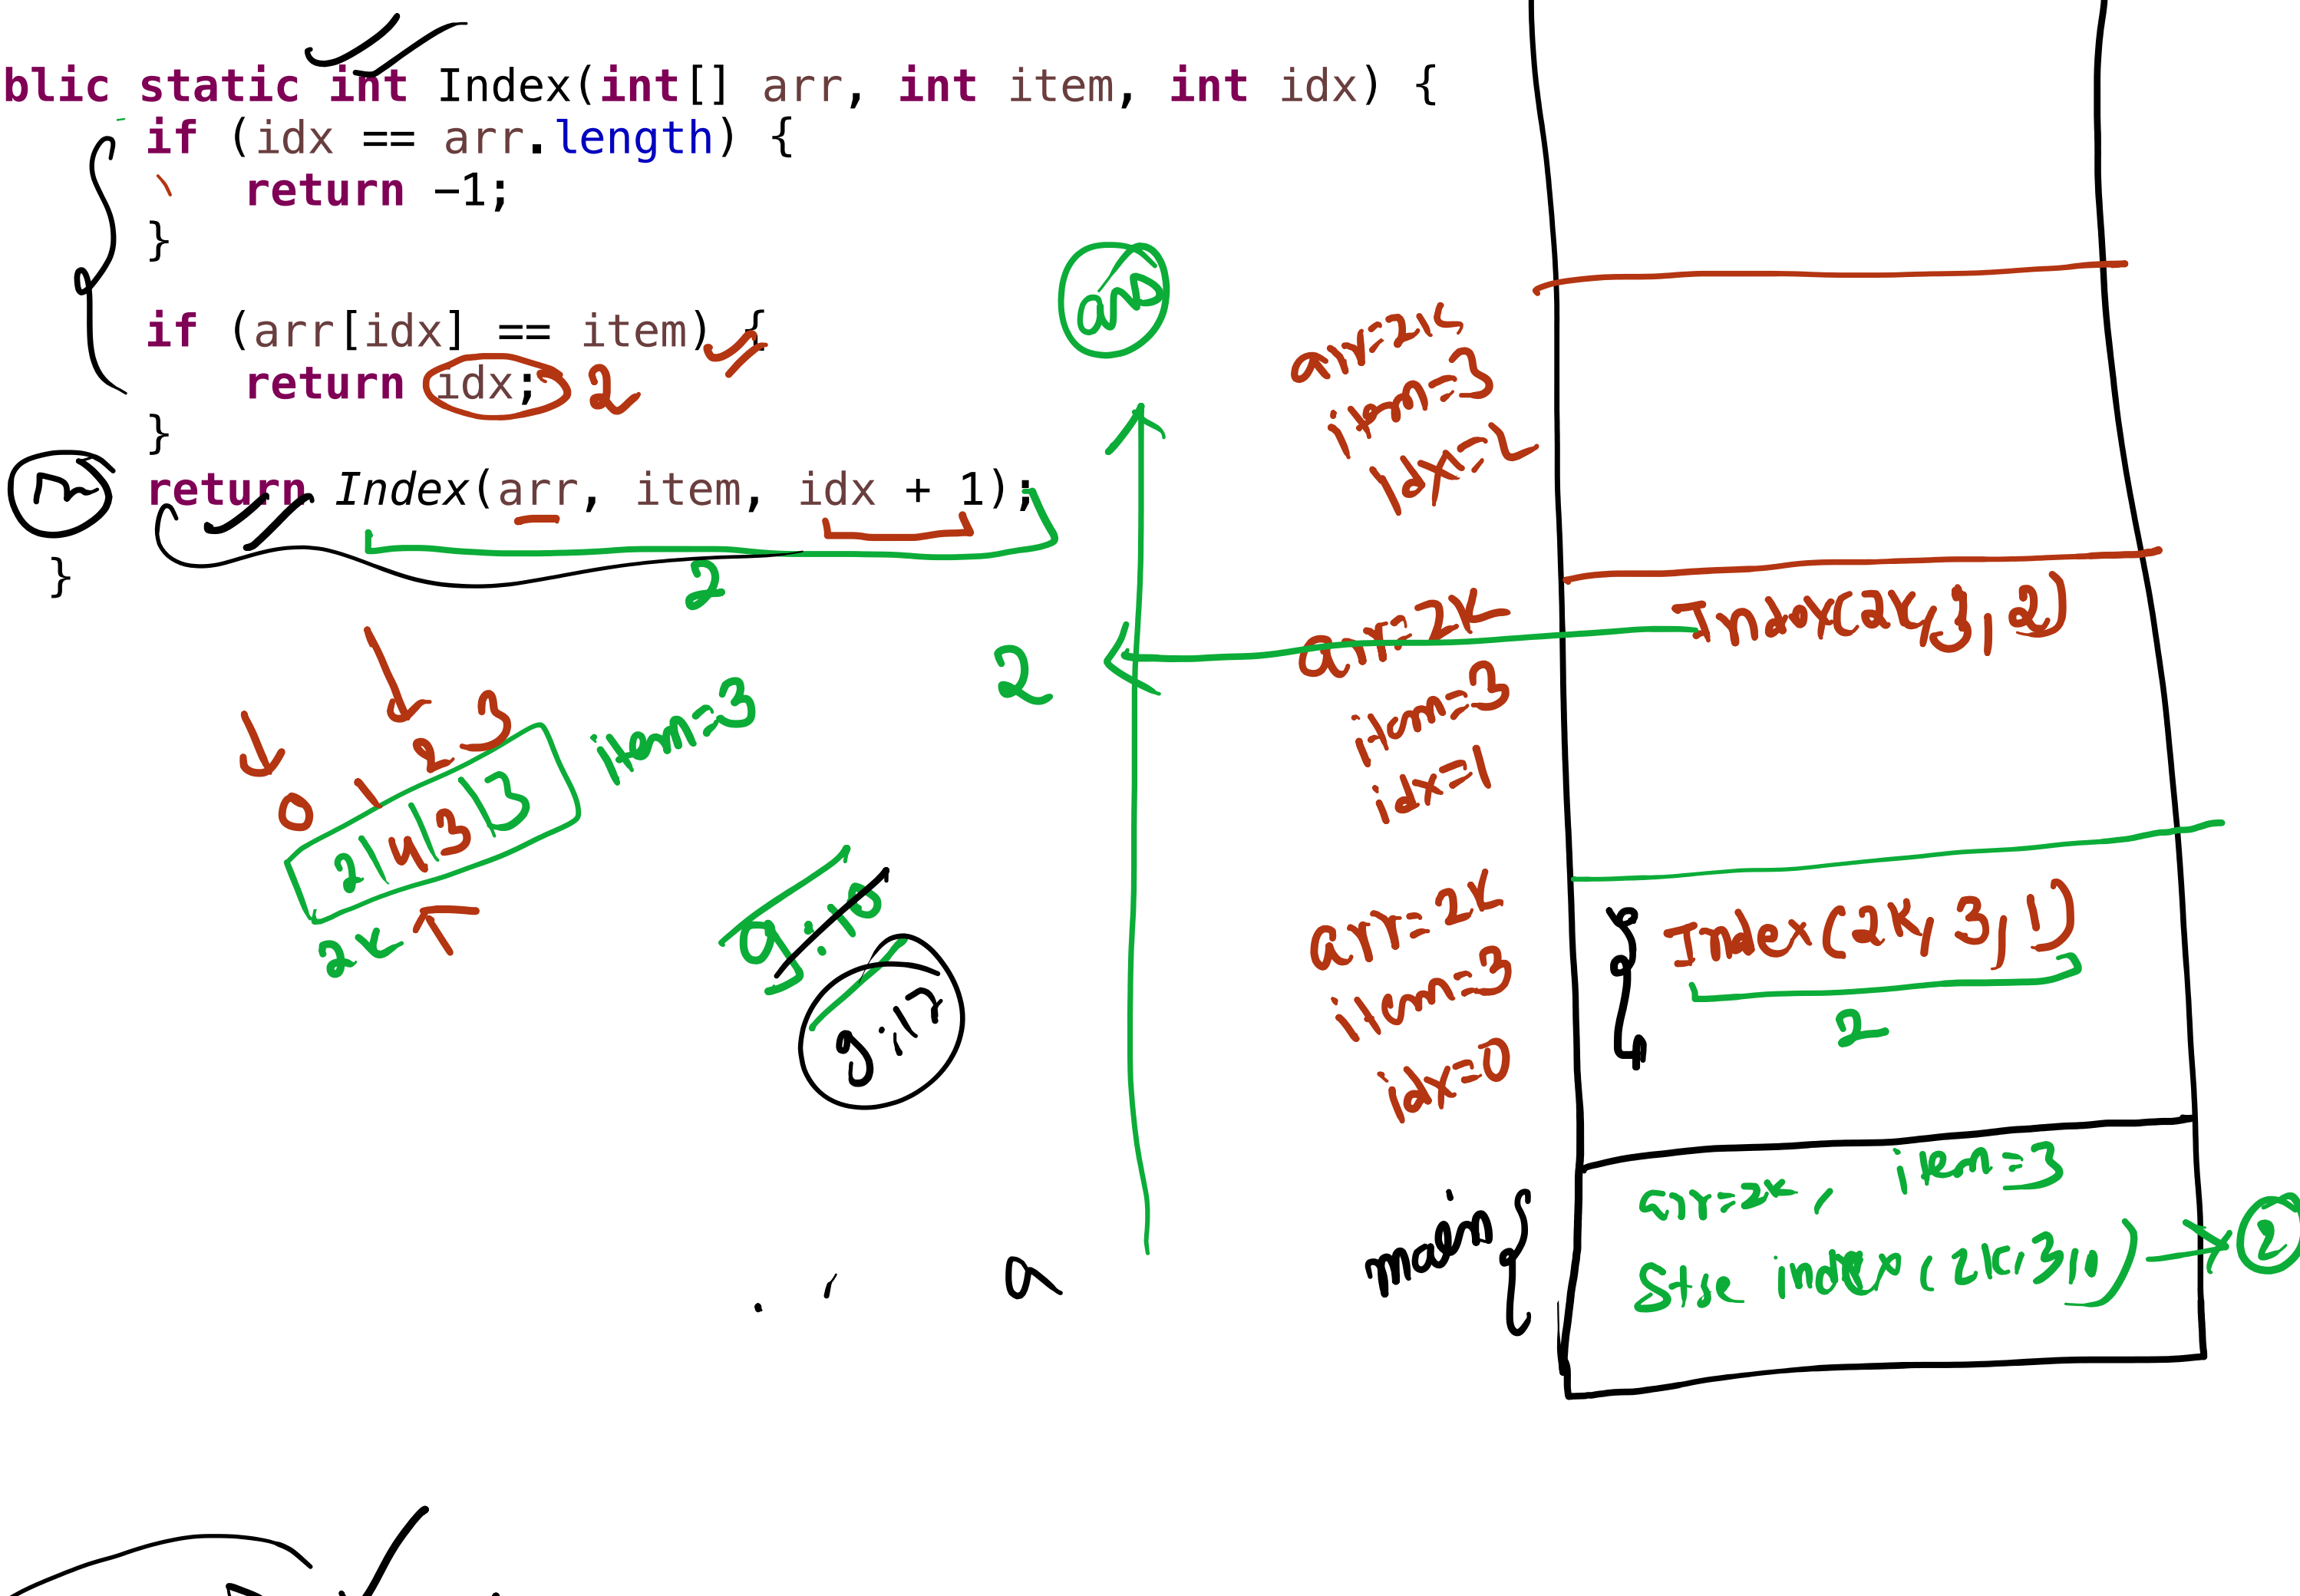 blic static int Index(int[] arr, int item, int idx) {
if (idx == arr.length) {
return -1;
}
if (arr[idx] == item) {
return idx; 2
}
return Index(arr, item, idx + 1);
}
2
2
item=3
0 1 2 3
2 4 3 3
2k
9:10
9:17
a
arr=2k
item=3
idx=2
arr=2k
item=3
idx=1
Index(2k,3,2)
arr=2k
item=3
idx=0
Index(2k,3,1)
2
main
arr=2k, item=3
index(2k,3,0) 2